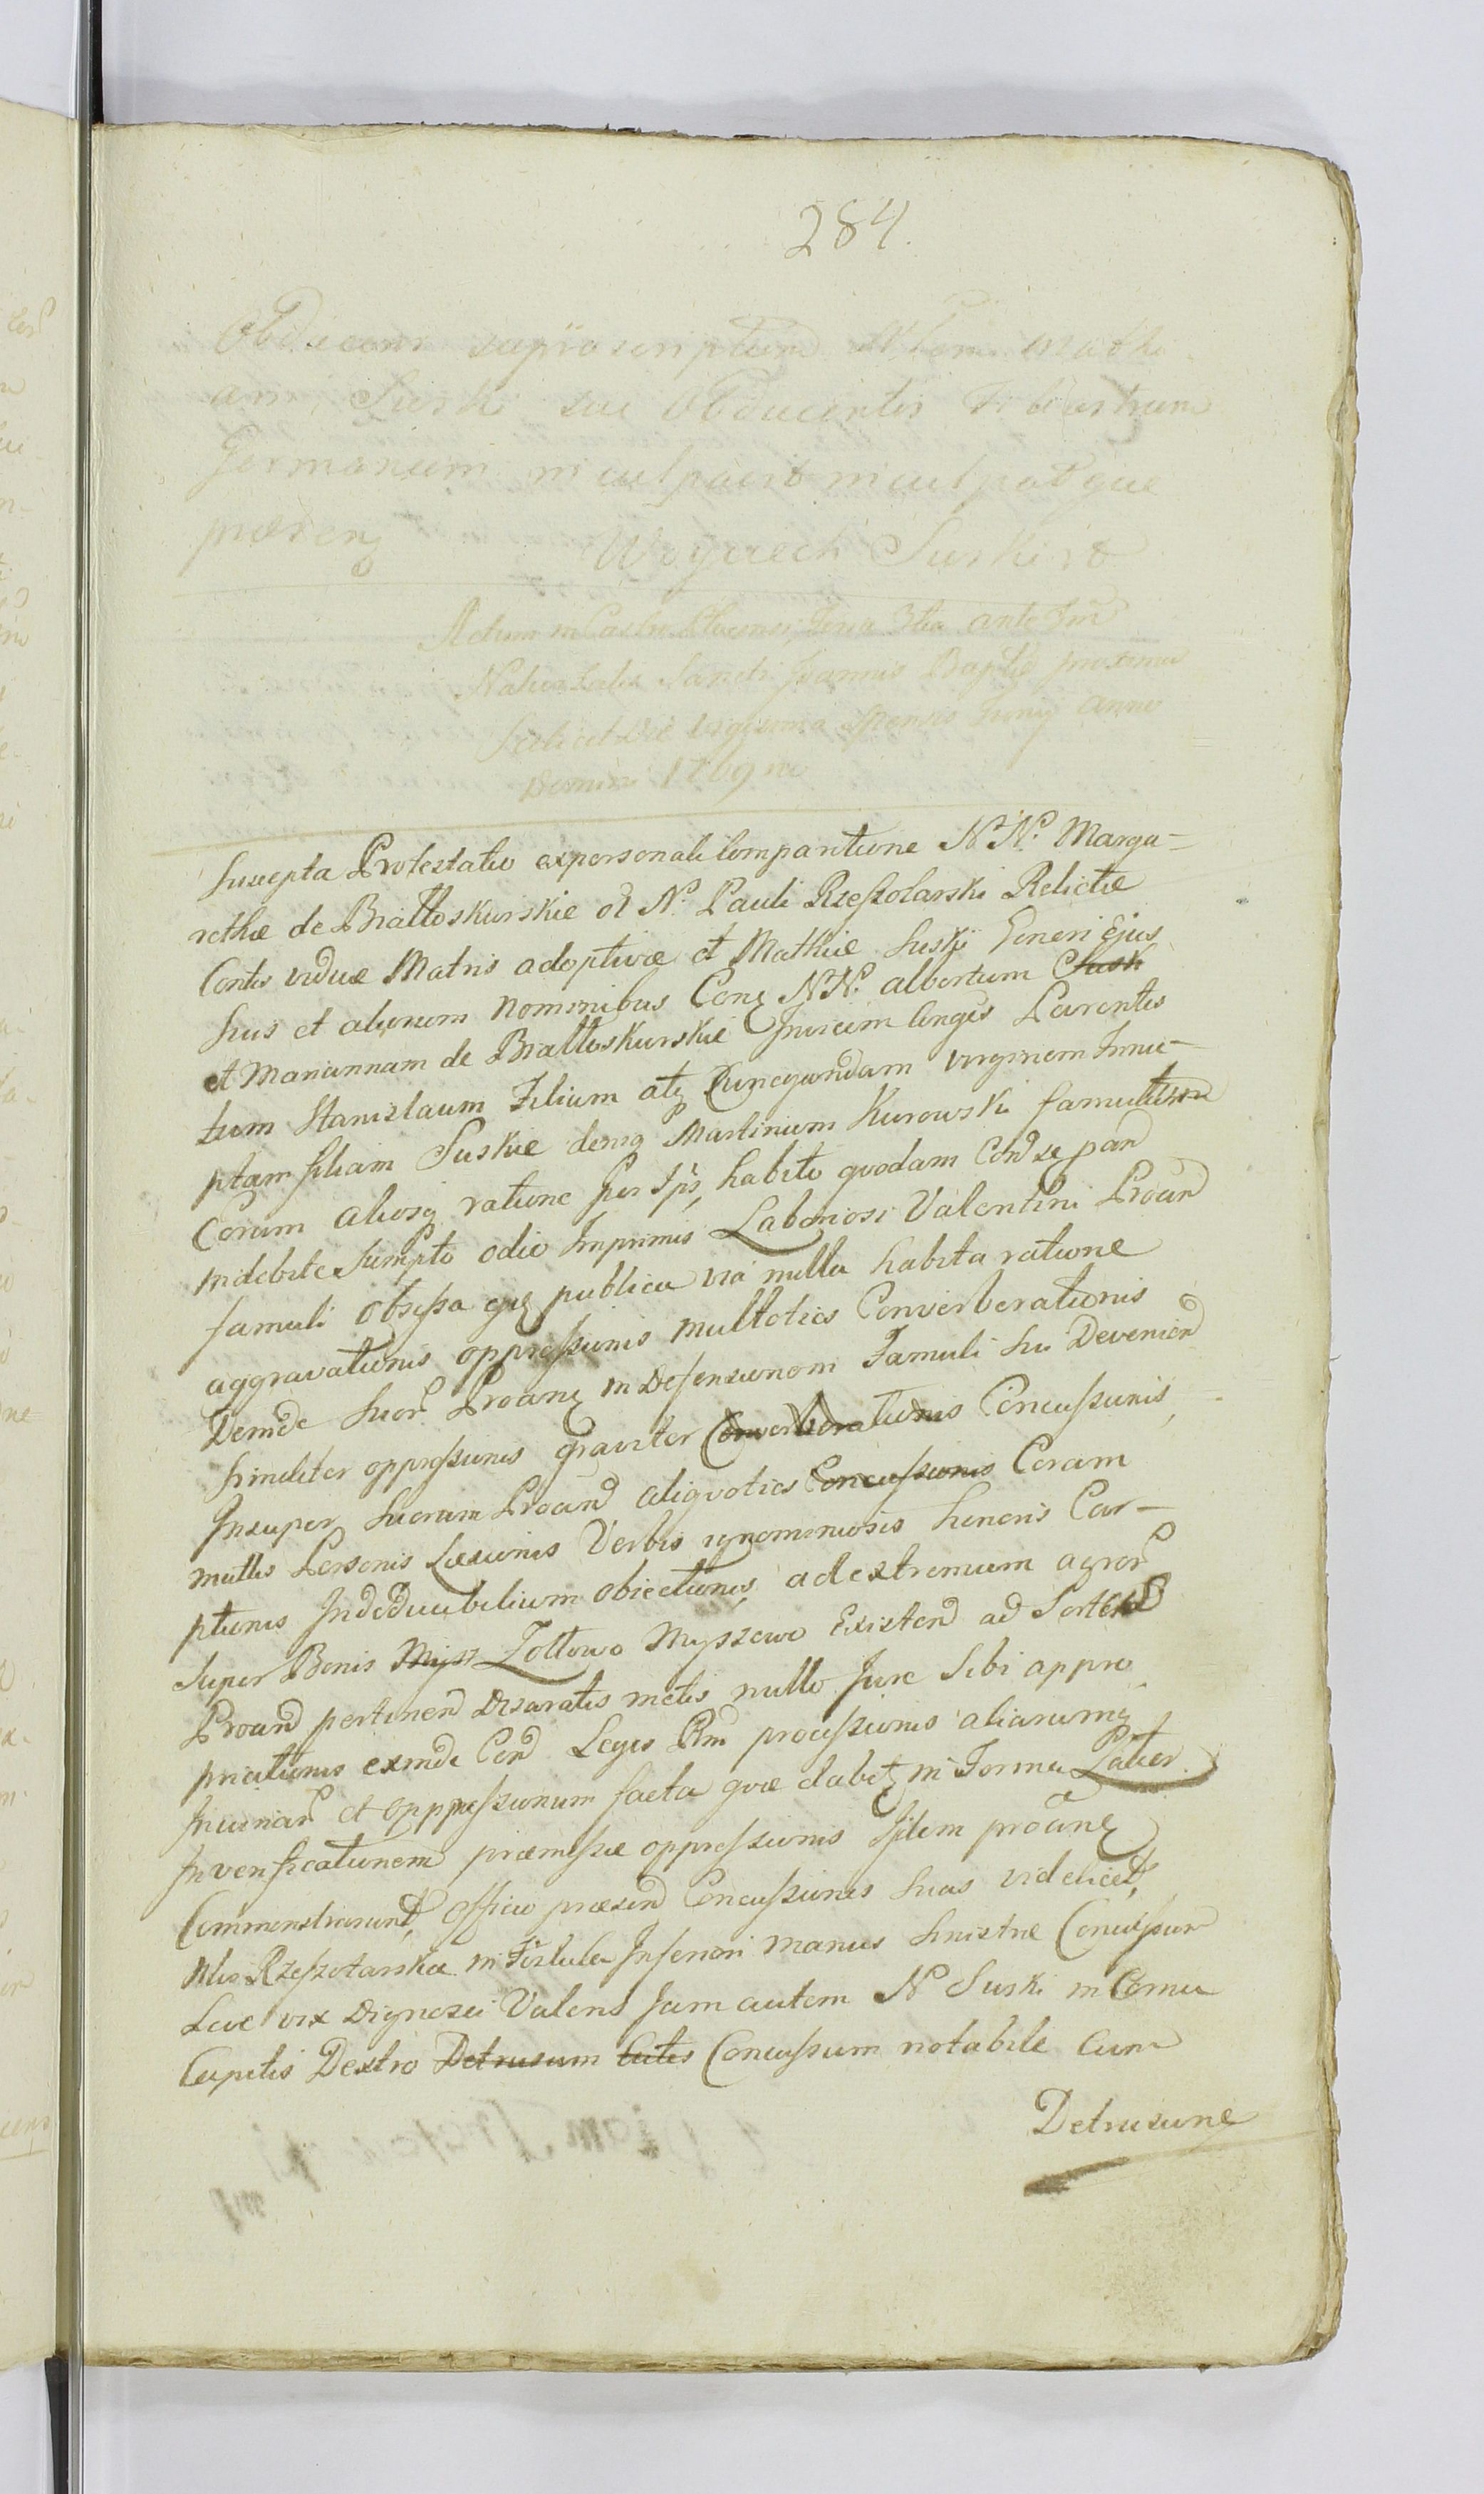 284.
Obducens suprascriptum Nlem Mathi
am Suski sui Obducentis Filiastrum
Germanum inculpavit inculpatque
præsen
Woyciech Suski
Actum in Castro Feria 3tia ante Fm
Nativitatis Sancti Joannis Baptæ proxima
Scilicet die vigesima Mensis Junij Anno
Domini 1769no
Suscepta Protestatio ex personali Comparitione N.N. Marga=
rethæ de Białłoskurskie ol N. Pauli Rzeszotarski Relictæ
Contis viduæ Matris adoptivæ et Mathiæ Suski Generi Ejus
suis et aliorum nominibus Cong NN. albertum Susk
et Mariannam de Białłoskurskie Invicem Conges Parentes
tum Stanislaum Filium atq Cunegundam virginem Innu=
ptam filiam Suskie deniq Martinum Kurowski famulum
Eorum aliosq ratione per Ipś, habito quodam Cond se pan
indebite sumpto odio Imprimis Laboriosi Valentini Proan
famuli obsessa eq publica via nulla habita ratione
aggravationis oppressionis multoties Converberationis
Deinde Suor Proanq in defensionem Famuli sui Devenien
similiter oppressionis graviter Converberationis Concussionis,
Insuper suorum Proand aliquoties Concussionis Coram
multis Personis Læsionis Verbis ignominiosis honoris Car=
ptionis Indeducibilium obiectionis, ad extremum agror
super Bonis Mysz Zołtowo Myszewo Existen ad Sortem
Proand pertinen disaratis metis nullo Jure Sibi appro
priationis exinde Cond Leges Rni processionis aliarumq
Iniuriar et oppressionum facta quæ dabit in Forma Latior.
In verificationem præmissæ oppressionis Iidem proanq
Commonstrarunt, Officio præsend Concussiones suas videlicet,
Nlis Rzeszotarska in Fistula Inferiori manus sinistræ Concussum
Leve vix dignosci Valens Jam autem N Suski in Cornu
Capitis Dextro Detrusum Cutis Concussum notabile Cum
Detrusione